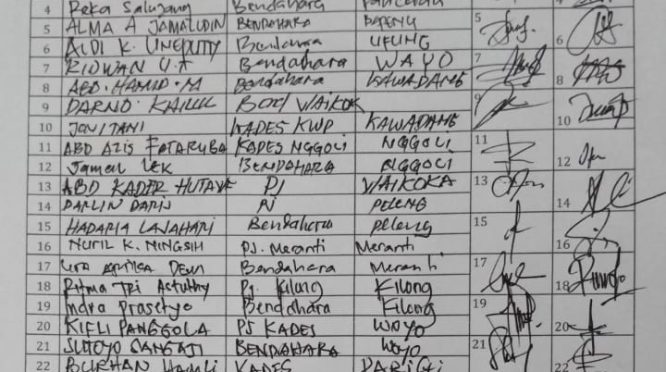 4 Reka Bendahara
5 ALMA A JAMALUDIN BENDAHARA 5
6 ALDI K. UNEPUTTY Bendahara UFUNG 6
7 RIDWAN U.A Bendahara WAYO 7
8 ABD. HAMID. M Bendahara KAWADANG 8
9 DARNO WAIKOK 9
10 JONI TANI KADES KWD KAWADANG 10
11 ABD AZIS FATARUBA KADES NGGOLI NGGOLI 11
12 Jamal BENDAHARA NGGOLI 12
13 ABD KADER PJ WAIKOKA 13
14 DARLIN DARIS PJ PELENG 14
15 HADARIA LAJAHARI Bendahara peleng 15
16 NURIL K. NINGSIH PJ. Meranti Meranti 16
17 DEWI Bendahara Meranti 17
18 Ritma Tri Astuthy Pj. Kilong Kilong 18
19 Indra Prasetyo Bendahara Kilong 19
20 KIFLI PANGGOLA PJ KADES WAYO 20
21 SUTOYO SANGAJI BENDAHARA Wayo 21
22 BURHAN KADES PARIGI 22